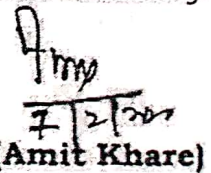 7/2/20
(Amit Khare)